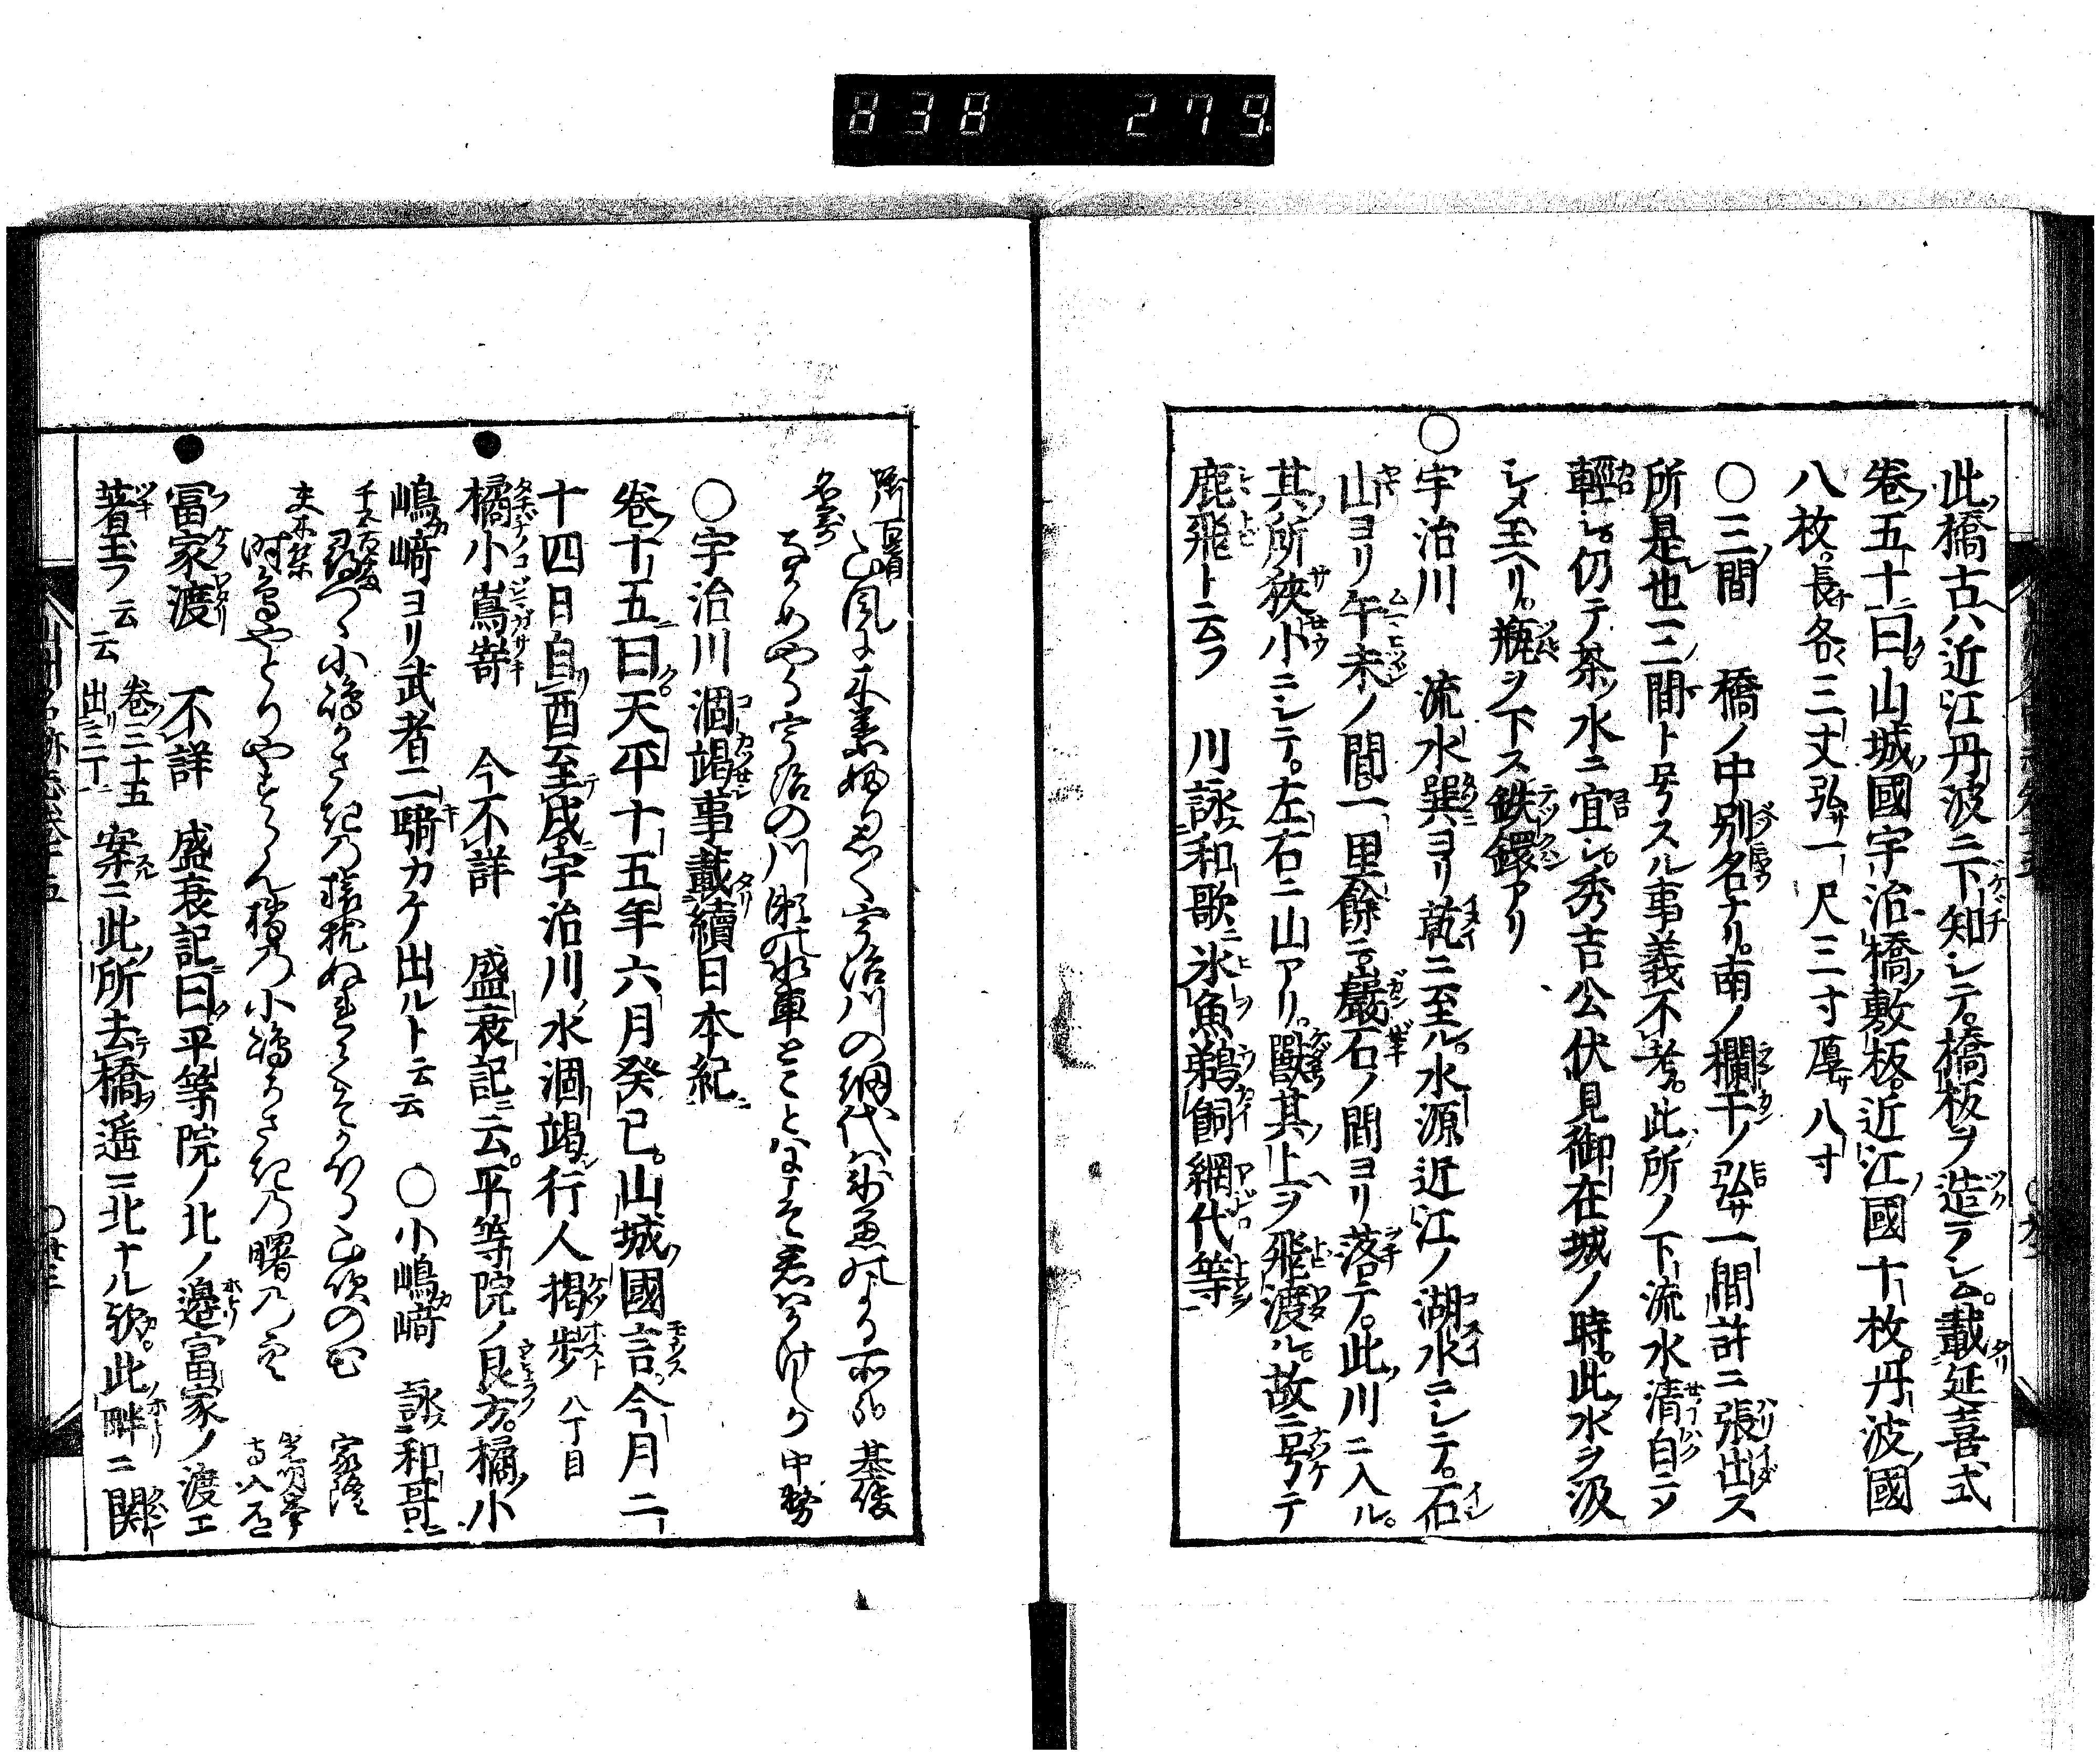 838 279
此橋古ハ近江丹波ニ下知シテ。橋板ヲ造ラシム。載延喜式
卷五十ニ曰山城國宇治橋敷板。近江國十枚。丹波國
八枚。長サ各三丈弘サ一尺三寸厚サ八寸
○三間 橋ノ中別名ナリ。南ノ欄干ノ弘サ一間計ニ張出ス
所是也三間ト号スル事義不考。此所ノ下流水清白ニシ
輕シ。仍テ茶ノ水ニ宜シ。秀吉公伏見御在城ノ時。此水ヲ汲
シメ玉ヘリ。瓶ヲ下ス鉄鐶アリ
○宇治川 流水巽ヨリ乾ニ至ル。水源近江ノ湖水ニシテ。石
山ヨリ午未ノ間。一里餘ニ巖石ノ間ヨリ落テ。此川ニ入ル。
其所狹小ニシテ。左右ニ山アリ。獸其上ヲ飛渡ル。故ニ号テ
鹿飛ト云フ 川詠和歌ニ氷魚鵜飼網代等
山風に 宇治川の網代 基俊
名寄 なかめやる宇治の川瀬の水車ことはそ 中務
○宇治川涸竭事載續日本紀
卷十五ニ曰。天平十五年六月癸巳。山城國言。今月二
十四日自酉至戌宇治川水涸竭行人掲歩 八丁目
●橘小嶌嵜 今不詳 盛衰記ニ云。平等院ノ艮方。橘小
嶋﨑ヨリ武者二騎カケ出ルト云云 ○小嶋﨑 詠和哥
小嶋かさき乃 山吹の 家隆
夫木集 時鳥やとりやすらん橘乃小嶋かさき乃曙乃空 光明峯寺入道
●冨家渡 不詳 盛衰記曰平等院ノ北ノ邉富家ノ渡エ
著玉フ云云 卷三十五出三丁 案ニ此所去橋遥ニ北ナル歟。此畔ニ関